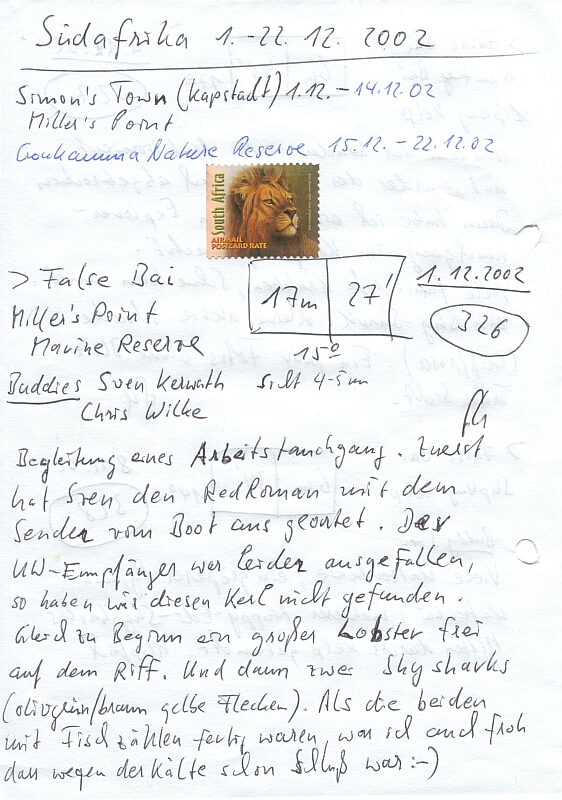 Südafrika 1.-22.12.2002
Simon's Town (Kapstadt) 1.12.-14.12.02
Miller's Point
Goukamma Nature Reserve 15.12.-22.12.02
South Africa
AIRMAIL
POSTCARD RATE
> False Bai
17m 27'
1.12.2002
Miller's Point
326
Marine Reserve
15°
Buddies Sven Kerwath Sicht 4-5m
Chris Wilke
Begleitung eines Arbeitstauchgang. Zuerst
hat Sven den RedRoman mit dem
Sender vom Boot aus geortet. Der
UW-Empfänger war leider ausgefallen,
so haben wir diesen Kerl nicht gefunden.
Gleich zu Beginn ein großer Lobster frei
auf dem Riff. Und dann zwei Shysharks
(olivgrün/braun gelbe Flecken). Als die beiden
mit Fischzählen fertig waren, war ich auch froh
dass wegen der Kälte schon Schluß war :-)